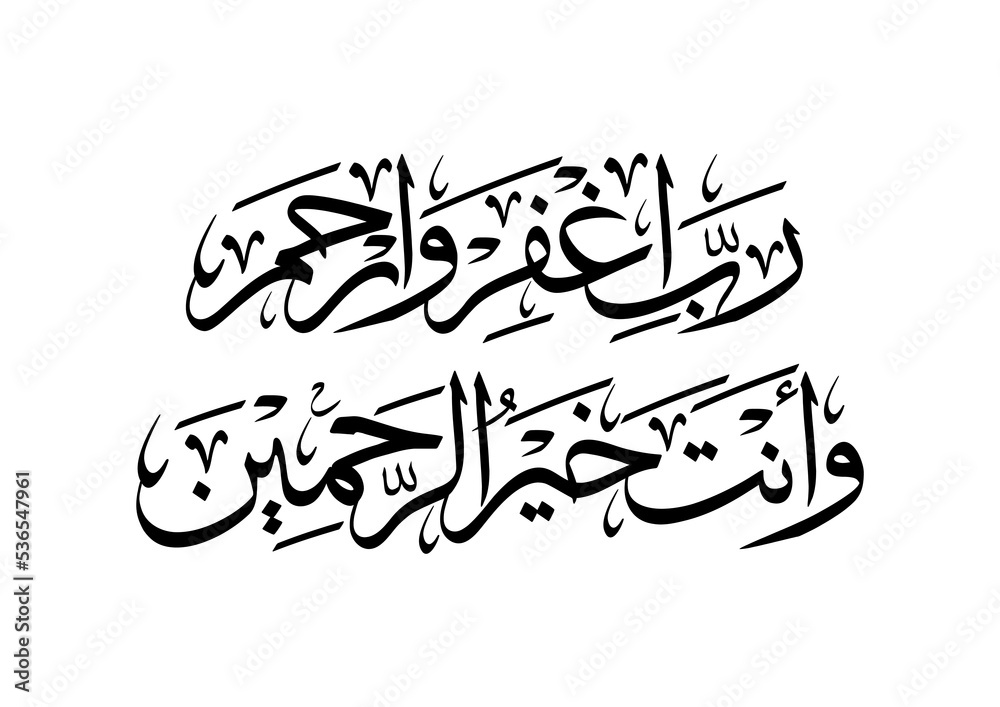 رَبِّ اغْفِرْ وَارْحَمْ
وَأَنْتَ خَيْرُ الرَّحِمِينَ
Adobe Stock | #536547961